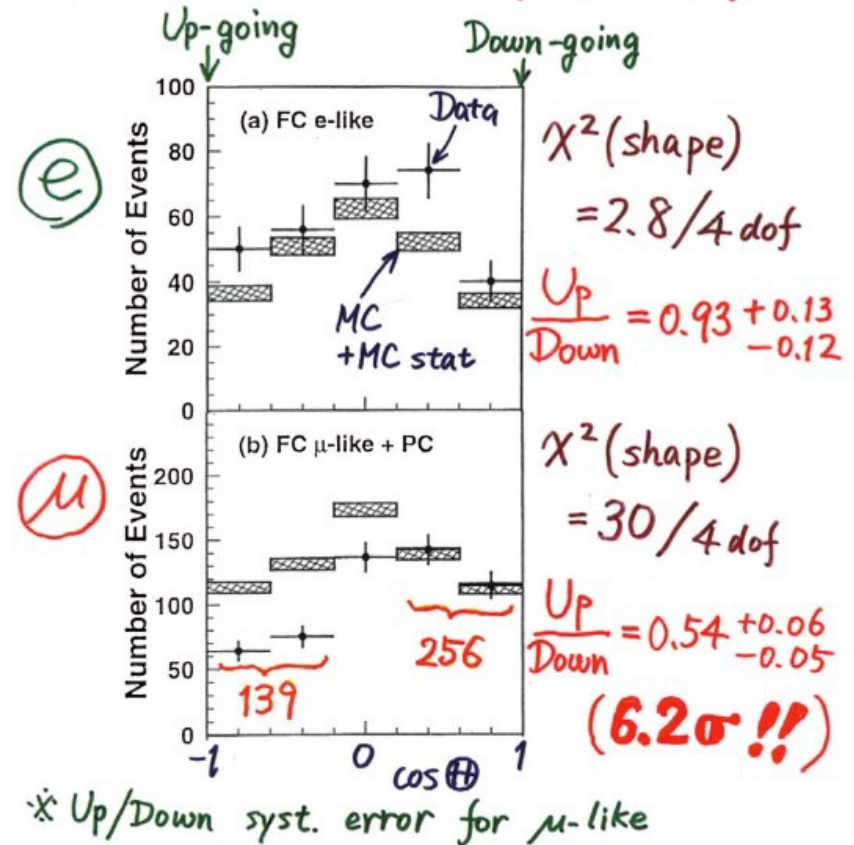 Up-going
Down-going
100
80
60
40
20
0
Number of Events
(a) FC e-like
Data
MC
+MC stat
e
χ² (shape)
= 2.8/4 dof
Up/Down = 0.93 +0.13 -0.12
200
150
100
50
0
Number of Events
(b) FC μ-like + PC
139
256
μ
χ² (shape)
= 30/4 dof
Up/Down = 0.54 +0.06 -0.05
(6.2σ !!)
-1 0 1
cos Θ
※ Up/Down syst. error for μ-like